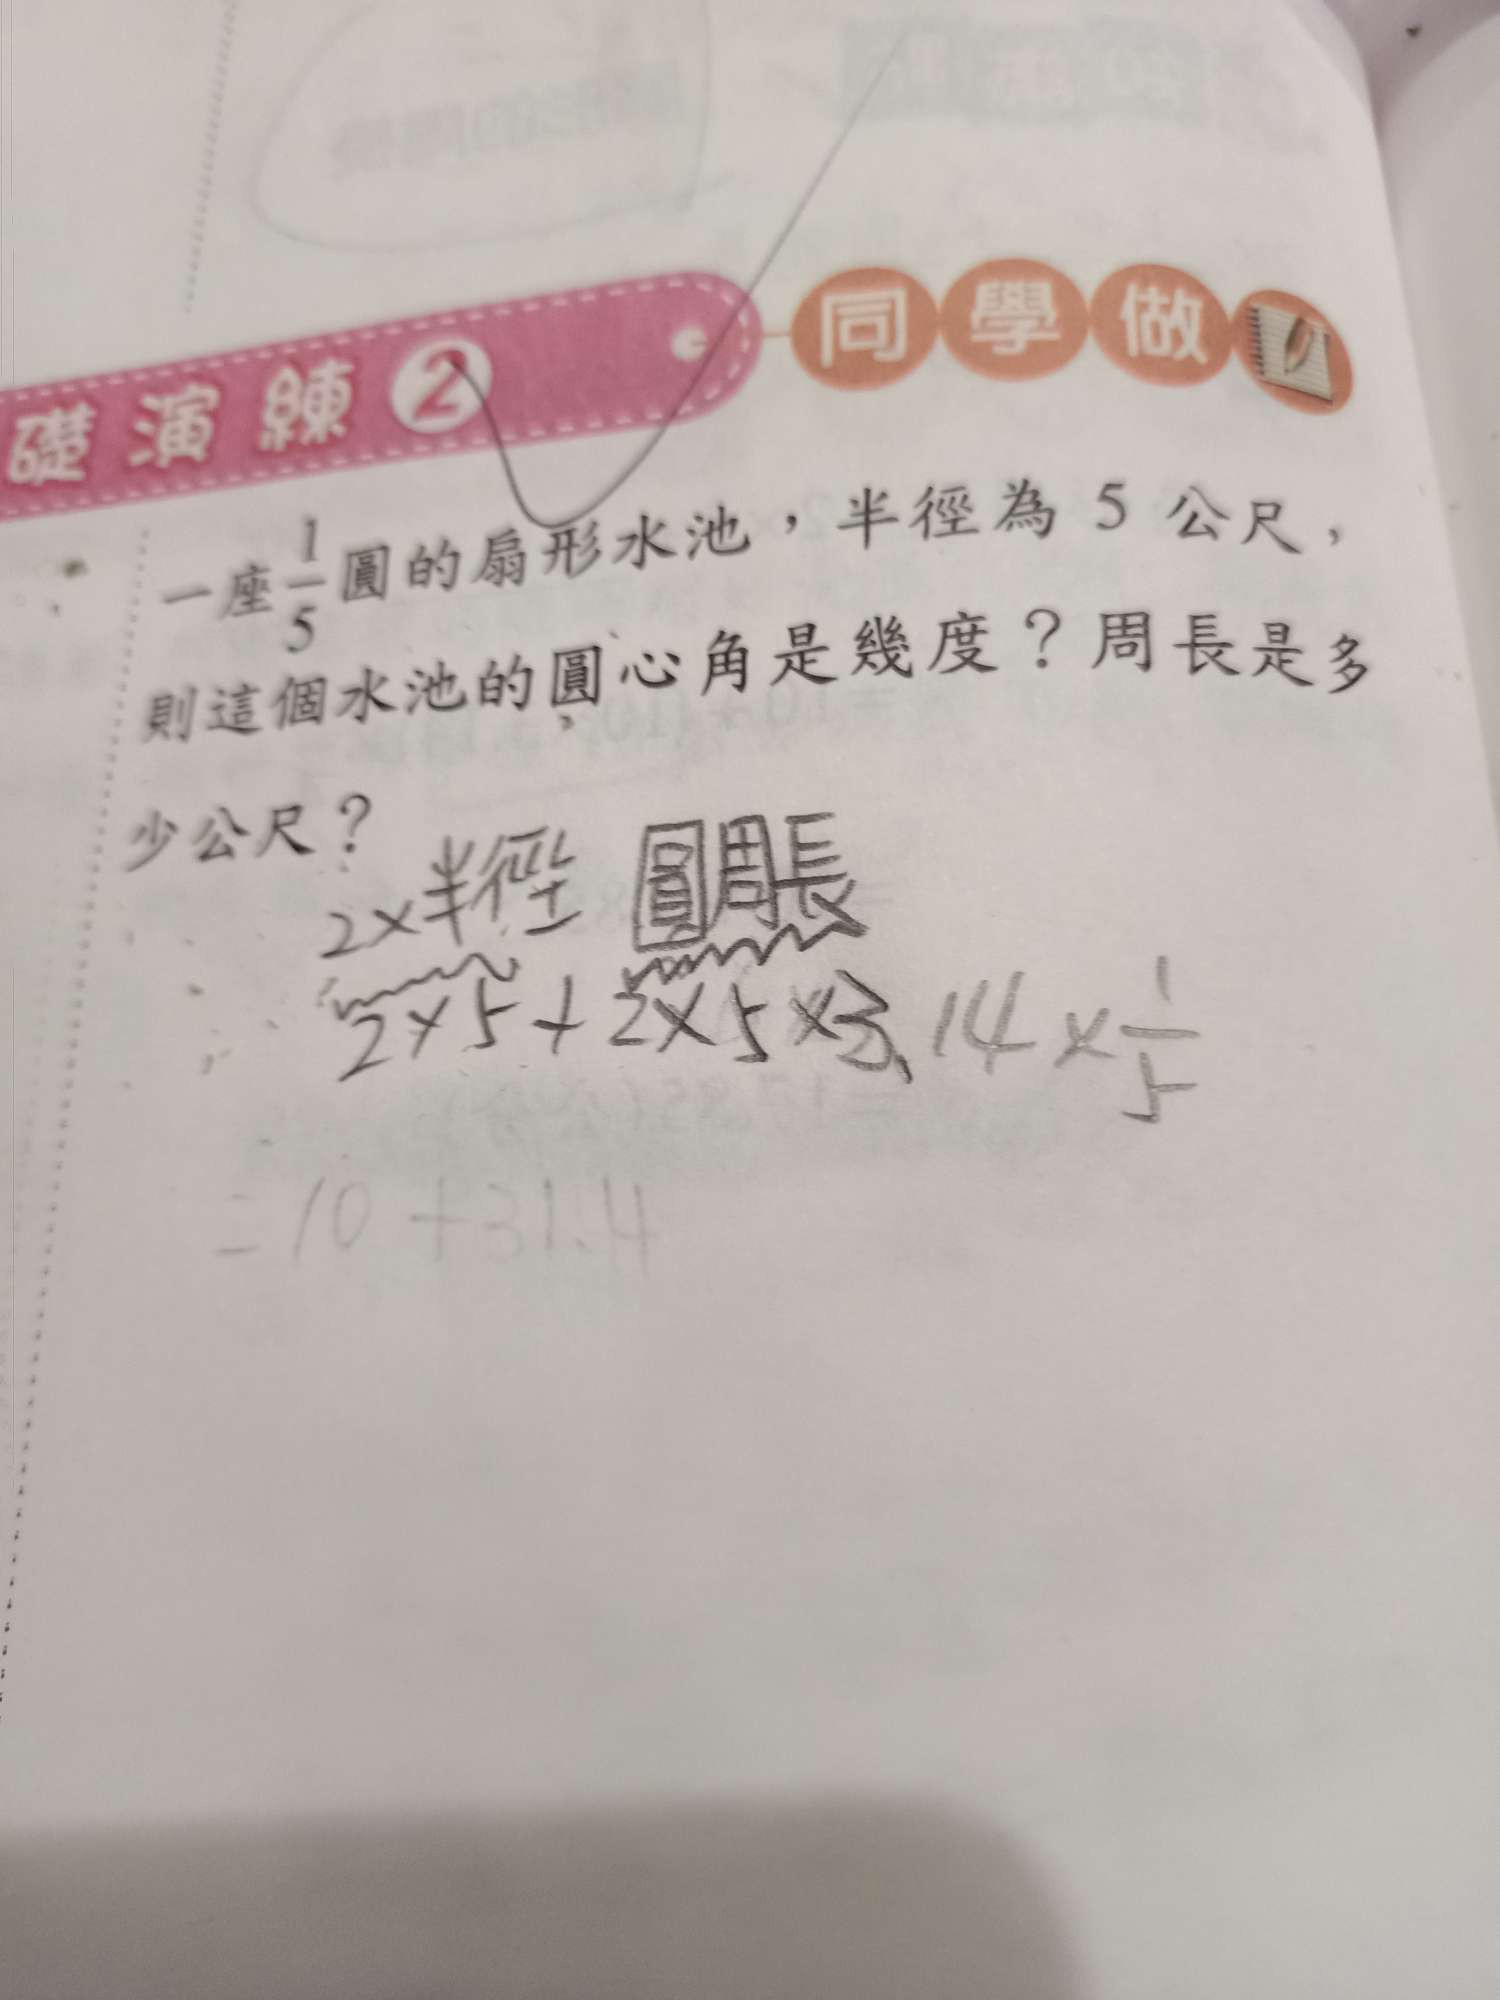 礎演練2 同學做
一座1/5圓的扇形水池，半徑為 5 公尺，
則這個水池的圓心角是幾度？周長是多
少公尺？
2×半徑 圓周長
2×5+2×5×3.14×1/5
=10+31.4